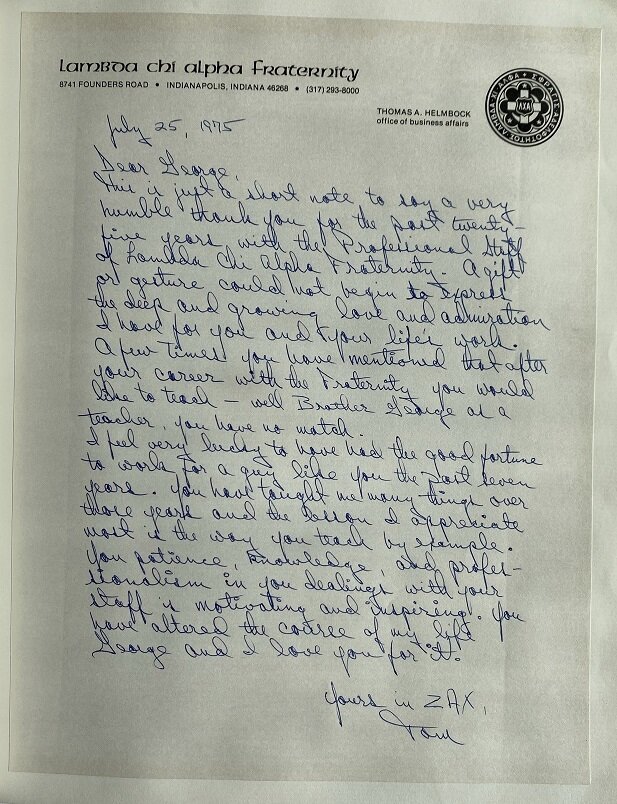 Lambda Chi Alpha Fraternity
8741 FOUNDERS ROAD • INDIANAPOLIS, INDIANA 46268 • (317) 293-8000
THOMAS A. HELMBOCK
office of business affairs
ΛΧΑ
July 25, 1975
Dear George,
This is just a short note to say a very
humble thank you for the past twenty-
five years with the Professional Staff
of Lambda Chi Alpha Fraternity. A gift
or gesture could not begin to express
the deep and growing love and admiration
I have for you and your life's work.
A few times you have mentioned that after
your career with the Fraternity you would
like to teach – well Brother George as a
teacher, you have no match.
I feel very lucky to have had the good fortune
to work for a guy like you the past seven
years. You have taught me many things over
those years and the lesson I appreciate
most is the way you teach by example.
You patience, knowledge, and profes-
sionalism in you dealings with your
staff is motivating and inspiring. You
have altered the course of my life
George and I love you for it.
Yours in ZAX,
Tom